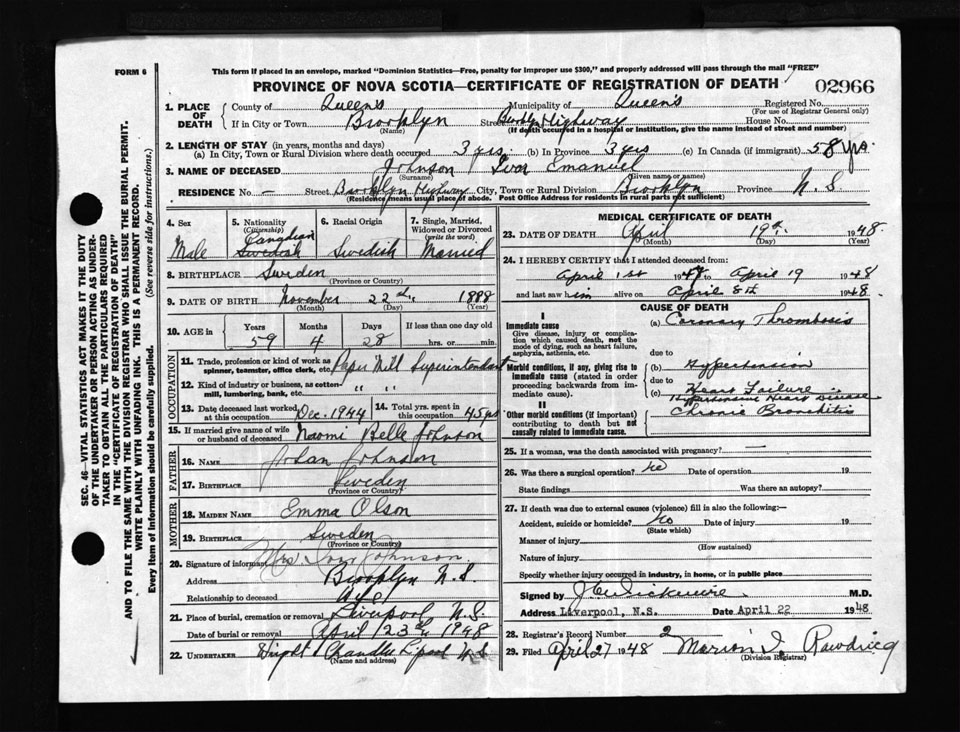 FORM 6
This form if placed in an envelope, marked "Dominion Statistics—Free, penalty for improper use $300," and properly addressed will pass through the mail "FREE"
PROVINCE OF NOVA SCOTIA—CERTIFICATE OF REGISTRATION OF DEATH
02966
SEC. 46—VITAL STATISTICS ACT MAKES IT THE DUTY
OF THE UNDERTAKER OR PERSON ACTING AS UNDER-
TAKER TO OBTAIN ALL THE PARTICULARS REQUIRED
IN THE "CERTIFICATE OF REGISTRATION OF DEATH"
AND TO FILE THE SAME WITH THE DIVISION REGISTRAR WHO SHALL ISSUE THE BURIAL PERMIT.
WRITE PLAINLY WITH UNFADING INK. THIS IS A PERMANENT RECORD.
Every item of Information should be carefully supplied. (See reverse side for instructions.)
1. PLACE OF DEATH County of Queens Municipality of Queens Registered No.
(For use of Registrar General only)
If in City or Town Brooklyn Street Brooklyn Highway House No.
(Name) (If death occurred in a hospital or institution, give the name instead of street and number)
2. LENGTH OF STAY (in years, months and days)
(a) In City, Town or Rural Division where death occurred 3 yrs. (b) In Province 3 yrs (c) In Canada (if immigrant) 58 yrs.
3. NAME OF DECEASED Johnson Ivar Emanuel
(Surname) (Given name or names)
RESIDENCE No. — Street Brooklyn Highway City, Town or Rural Division Brooklyn Province N.S
(Residence means usual place of abode. Post Office Address for residents in rural parts not sufficient)
4. Sex Male
5. Nationality (Citizenship) Canadian Swedish
6. Racial Origin Swedish
7. Single, Married, Widowed or Divorced (write the word) Married
8. BIRTHPLACE Sweden
(Province or Country)
9. DATE OF BIRTH November 22nd, 1888
(Month) (Day) (Year)
10. AGE in Years Months Days If less than one day old
59 4 28 hrs. or min.
OCCUPATION
11. Trade, profession or kind of work as spinner, teamster, office clerk, etc. Paper Mill Superintendant
12. Kind of industry or business, as cotton-mill, lumbering, bank, etc. " " "
13. Date deceased last worked at this occupation Dec. 1944
14. Total yrs. spent in this occupation 45 yrs
15. If married give name of wife or husband of deceased Naomi Belle Johnson
FATHER
16. NAME Johan Johnson
17. BIRTHPLACE Sweden
(Province or Country)
MOTHER
18. MAIDEN NAME Emma Olson
19. BIRTHPLACE Sweden
(Province or Country)
20. Signature of informant Mrs. Ivar Johnson
Address Brooklyn N.S.
Relationship to deceased Wife
21. Place of burial, cremation or removal Liverpool N.S.
Date of burial or removal April 23rd 1948
22. UNDERTAKER Chandler L'pool N.S
(Name and address)
MEDICAL CERTIFICATE OF DEATH
23. DATE OF DEATH April 19th. 1948.
(Month) (Day) (Year)
24. I HEREBY CERTIFY that I attended deceased from:
April 1st 1948 to April 19 1948
and last saw him alive on April 8th 1948.
CAUSE OF DEATH
I
Immediate cause
Give disease, injury or complication which caused death, not the mode of dying, such as heart failure, asphyxia, asthenia, etc.
(a) Coronary Thrombosis
due to
Morbid conditions, if any, giving rise to immediate cause (stated in order proceeding backwards from immediate cause).
(b) Hypertension
due to
(c) Heart Failure
Hypertensive Heart Disease
II
Other morbid conditions (if important) contributing to death but not causally related to immediate cause.
Chronic Bronchitis
25. If a woman, was the death associated with pregnancy? —
26. Was there a surgical operation? no Date of operation 19
State findings Was there an autopsy?
27. If death was due to external causes (violence) fill in also the following:—
Accident, suicide or homicide? No Date of injury 19
(State which)
Manner of injury
(How sustained)
Nature of injury
Specify whether injury occurred in industry, in home, or in public place
Signed by J.C. Wickwire M.D.
Address Liverpool, N.S. Date April 22 1948
28. Registrar's Record Number 2
29. Filed April 27 1948 Marion I.
(Division Registrar)